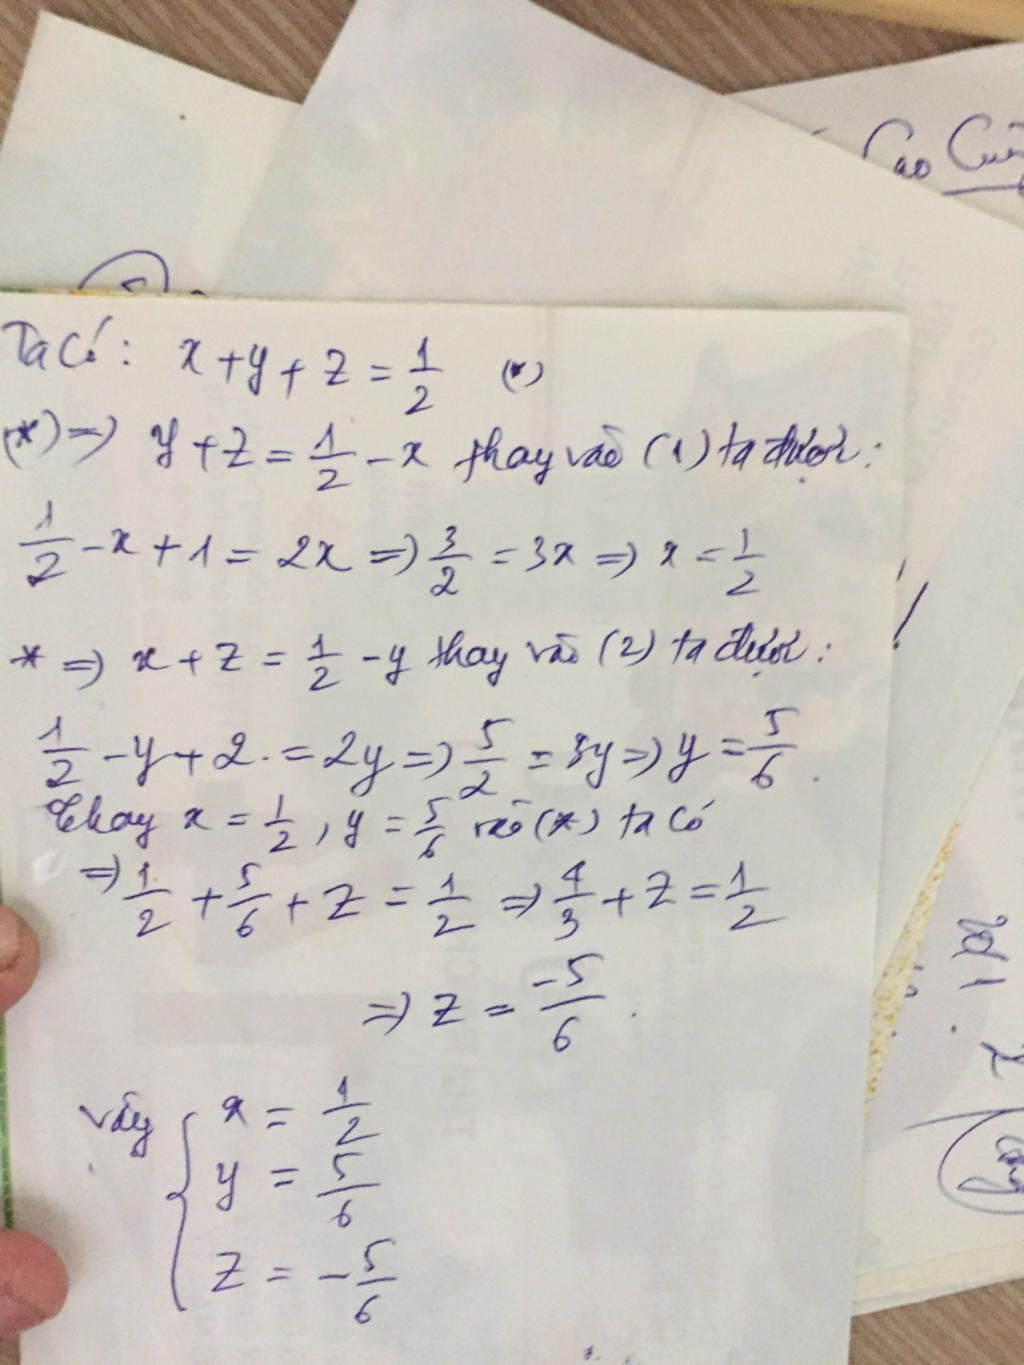 Cao
Ta có: x + y + z = 1/2 (*)
(*) => y + z = 1/2 - x thay vào (1) ta được:
1/2 - x + 1 = 2x => 3/2 = 3x => x = 1/2
* => x + z = 1/2 - y thay vào (2) ta được:
1/2 - y + 2. = 2y => 5/2 = 3y => y = 5/6.
Thay x = 1/2, y = 5/6 vào (*) ta có
=> 1/2 + 5/6 + z = 1/2 => 4/3 + z = 1/2
=> z = -5/6.
vậy { x = 1/2
y = 5/6
z = -5/6